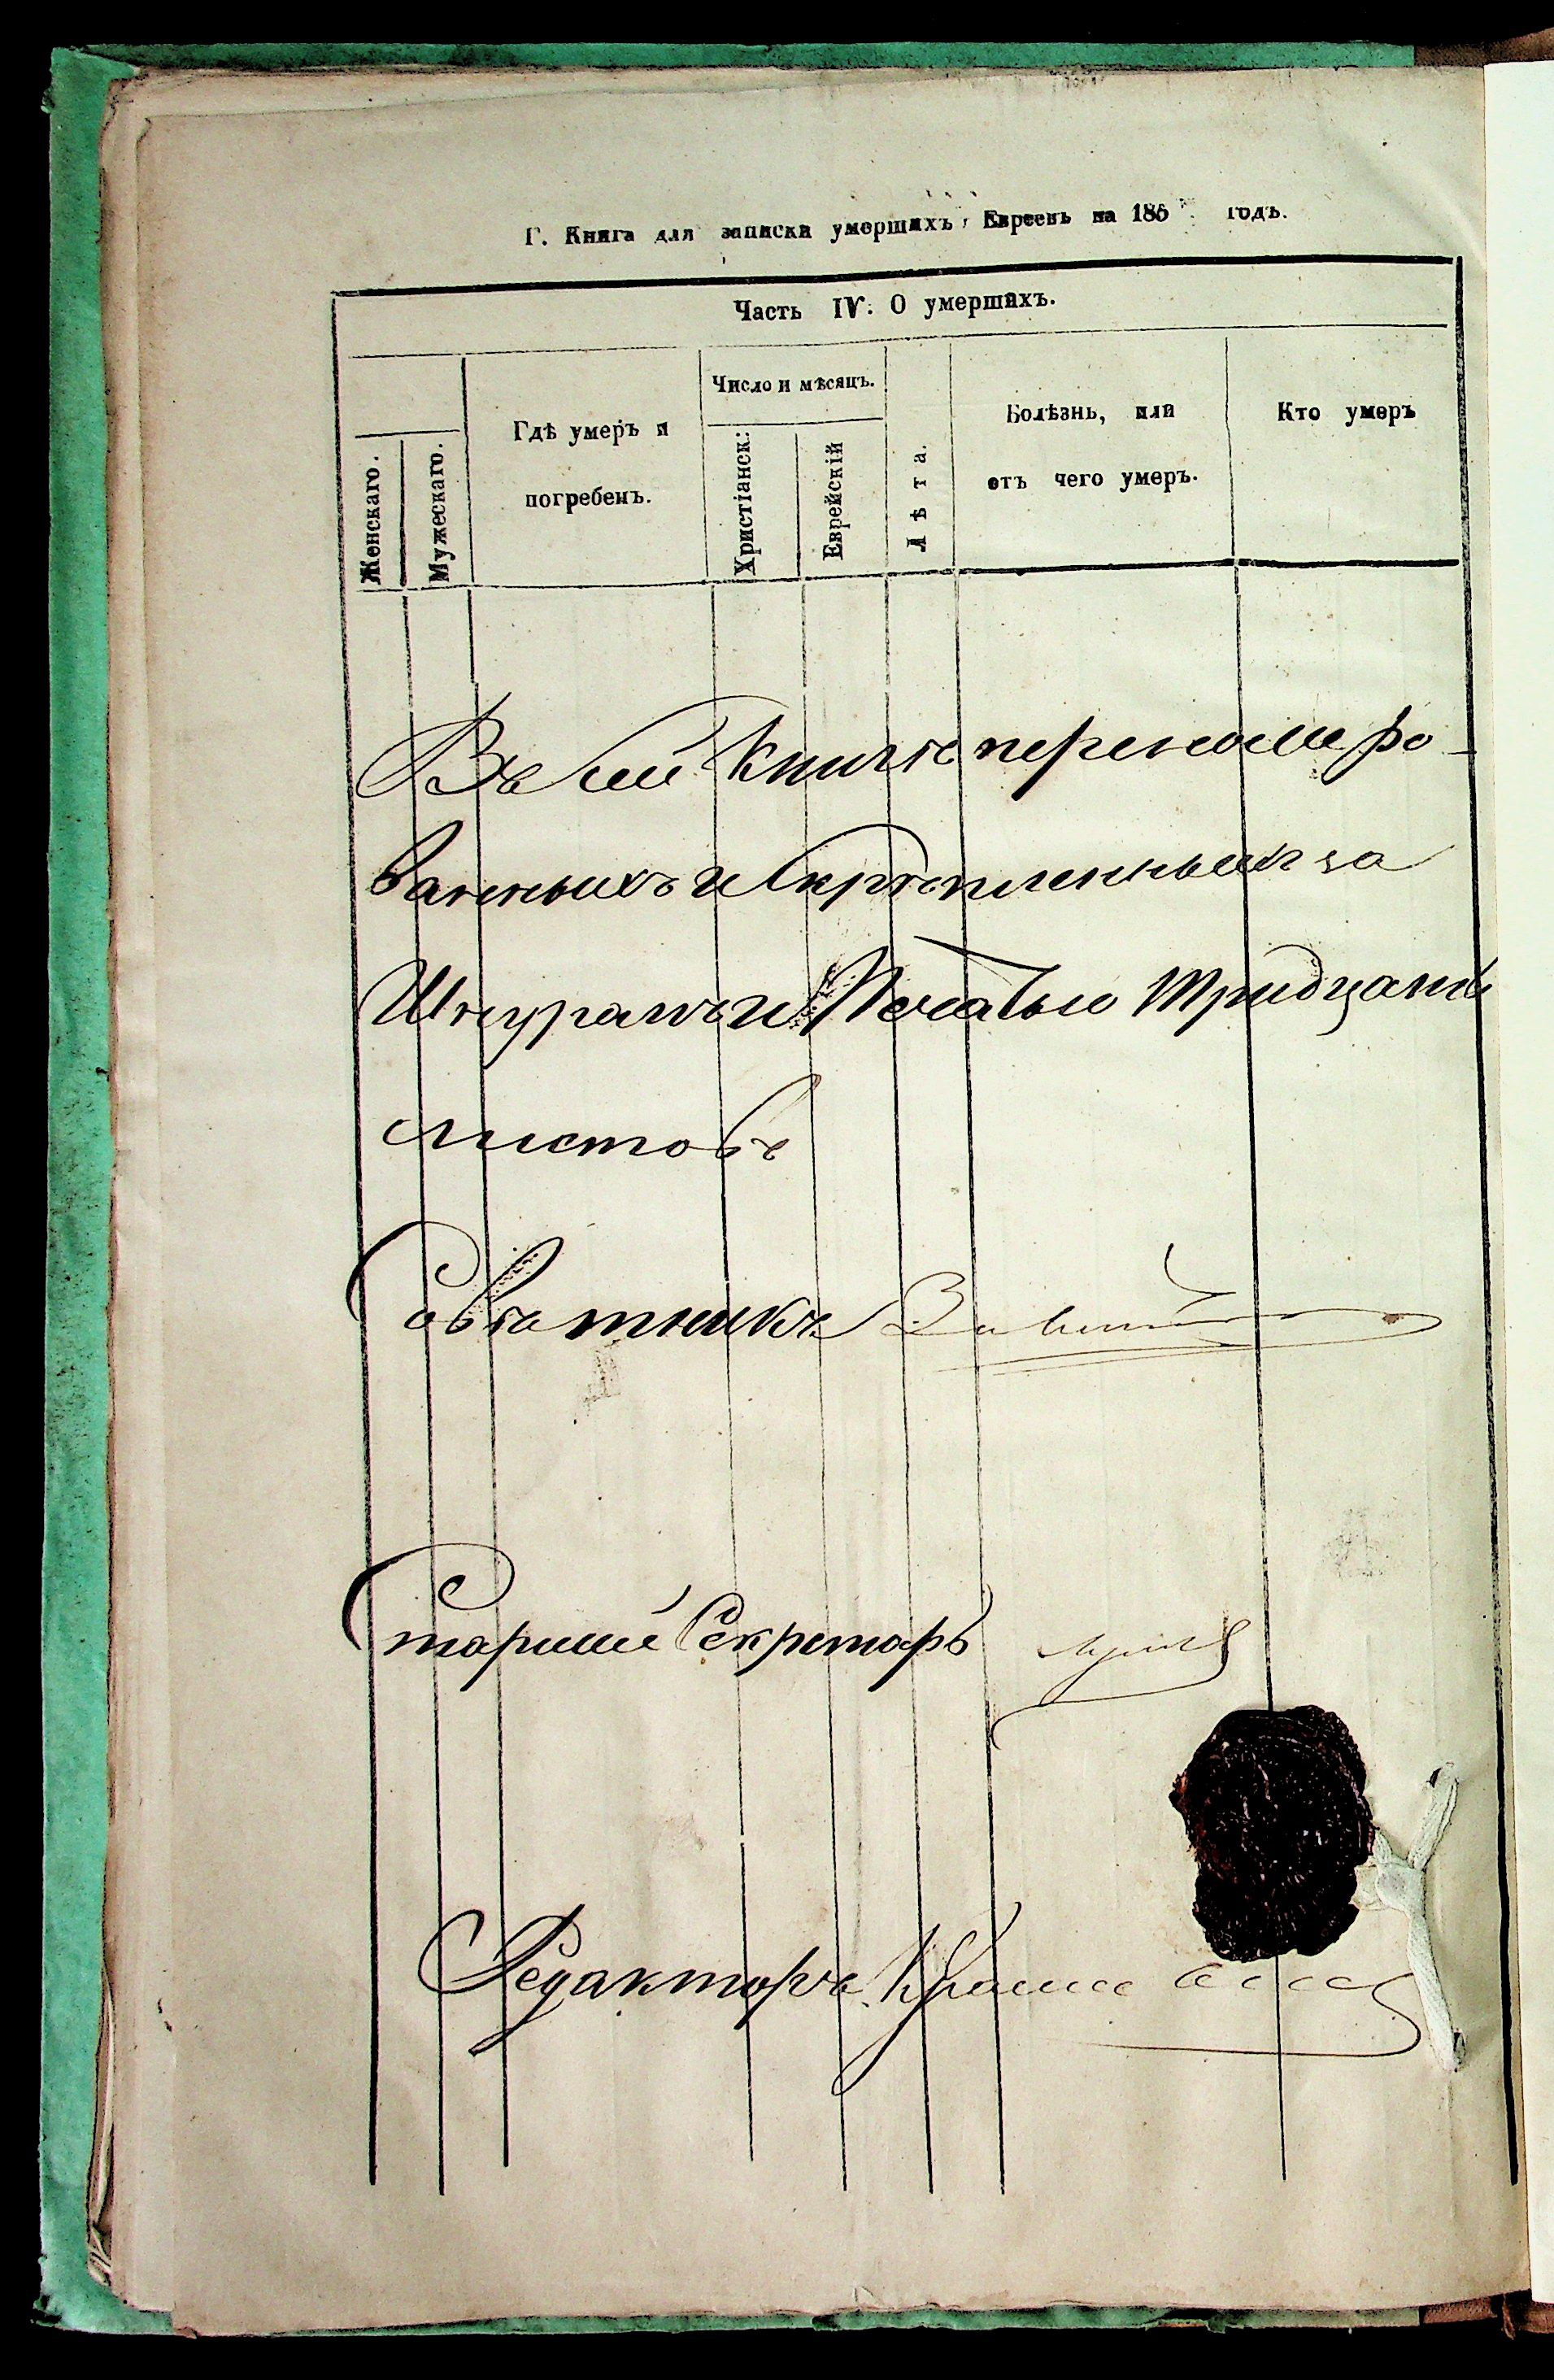 Г. Книга для записки умершихъ Евреевъ на 186 годъ.
Часть IV. О умершихъ.
Женскаго.
Мужескаго.
Гдѣ умеръ и
погребенъ.
Число и мѣсяцъ.
Христіанск:
Еврейскій
Лѣта.
Болѣзнь, или
отъ чего умеръ.
Кто умеръ
Въ сей Книгѣ перенумеро-
ванныхъ и Скрѣпленныхъ за
Шнуромъ и Печатью тридцать
листовъ
Совѣтникъ
Старшій Секретарь
Редакторъ